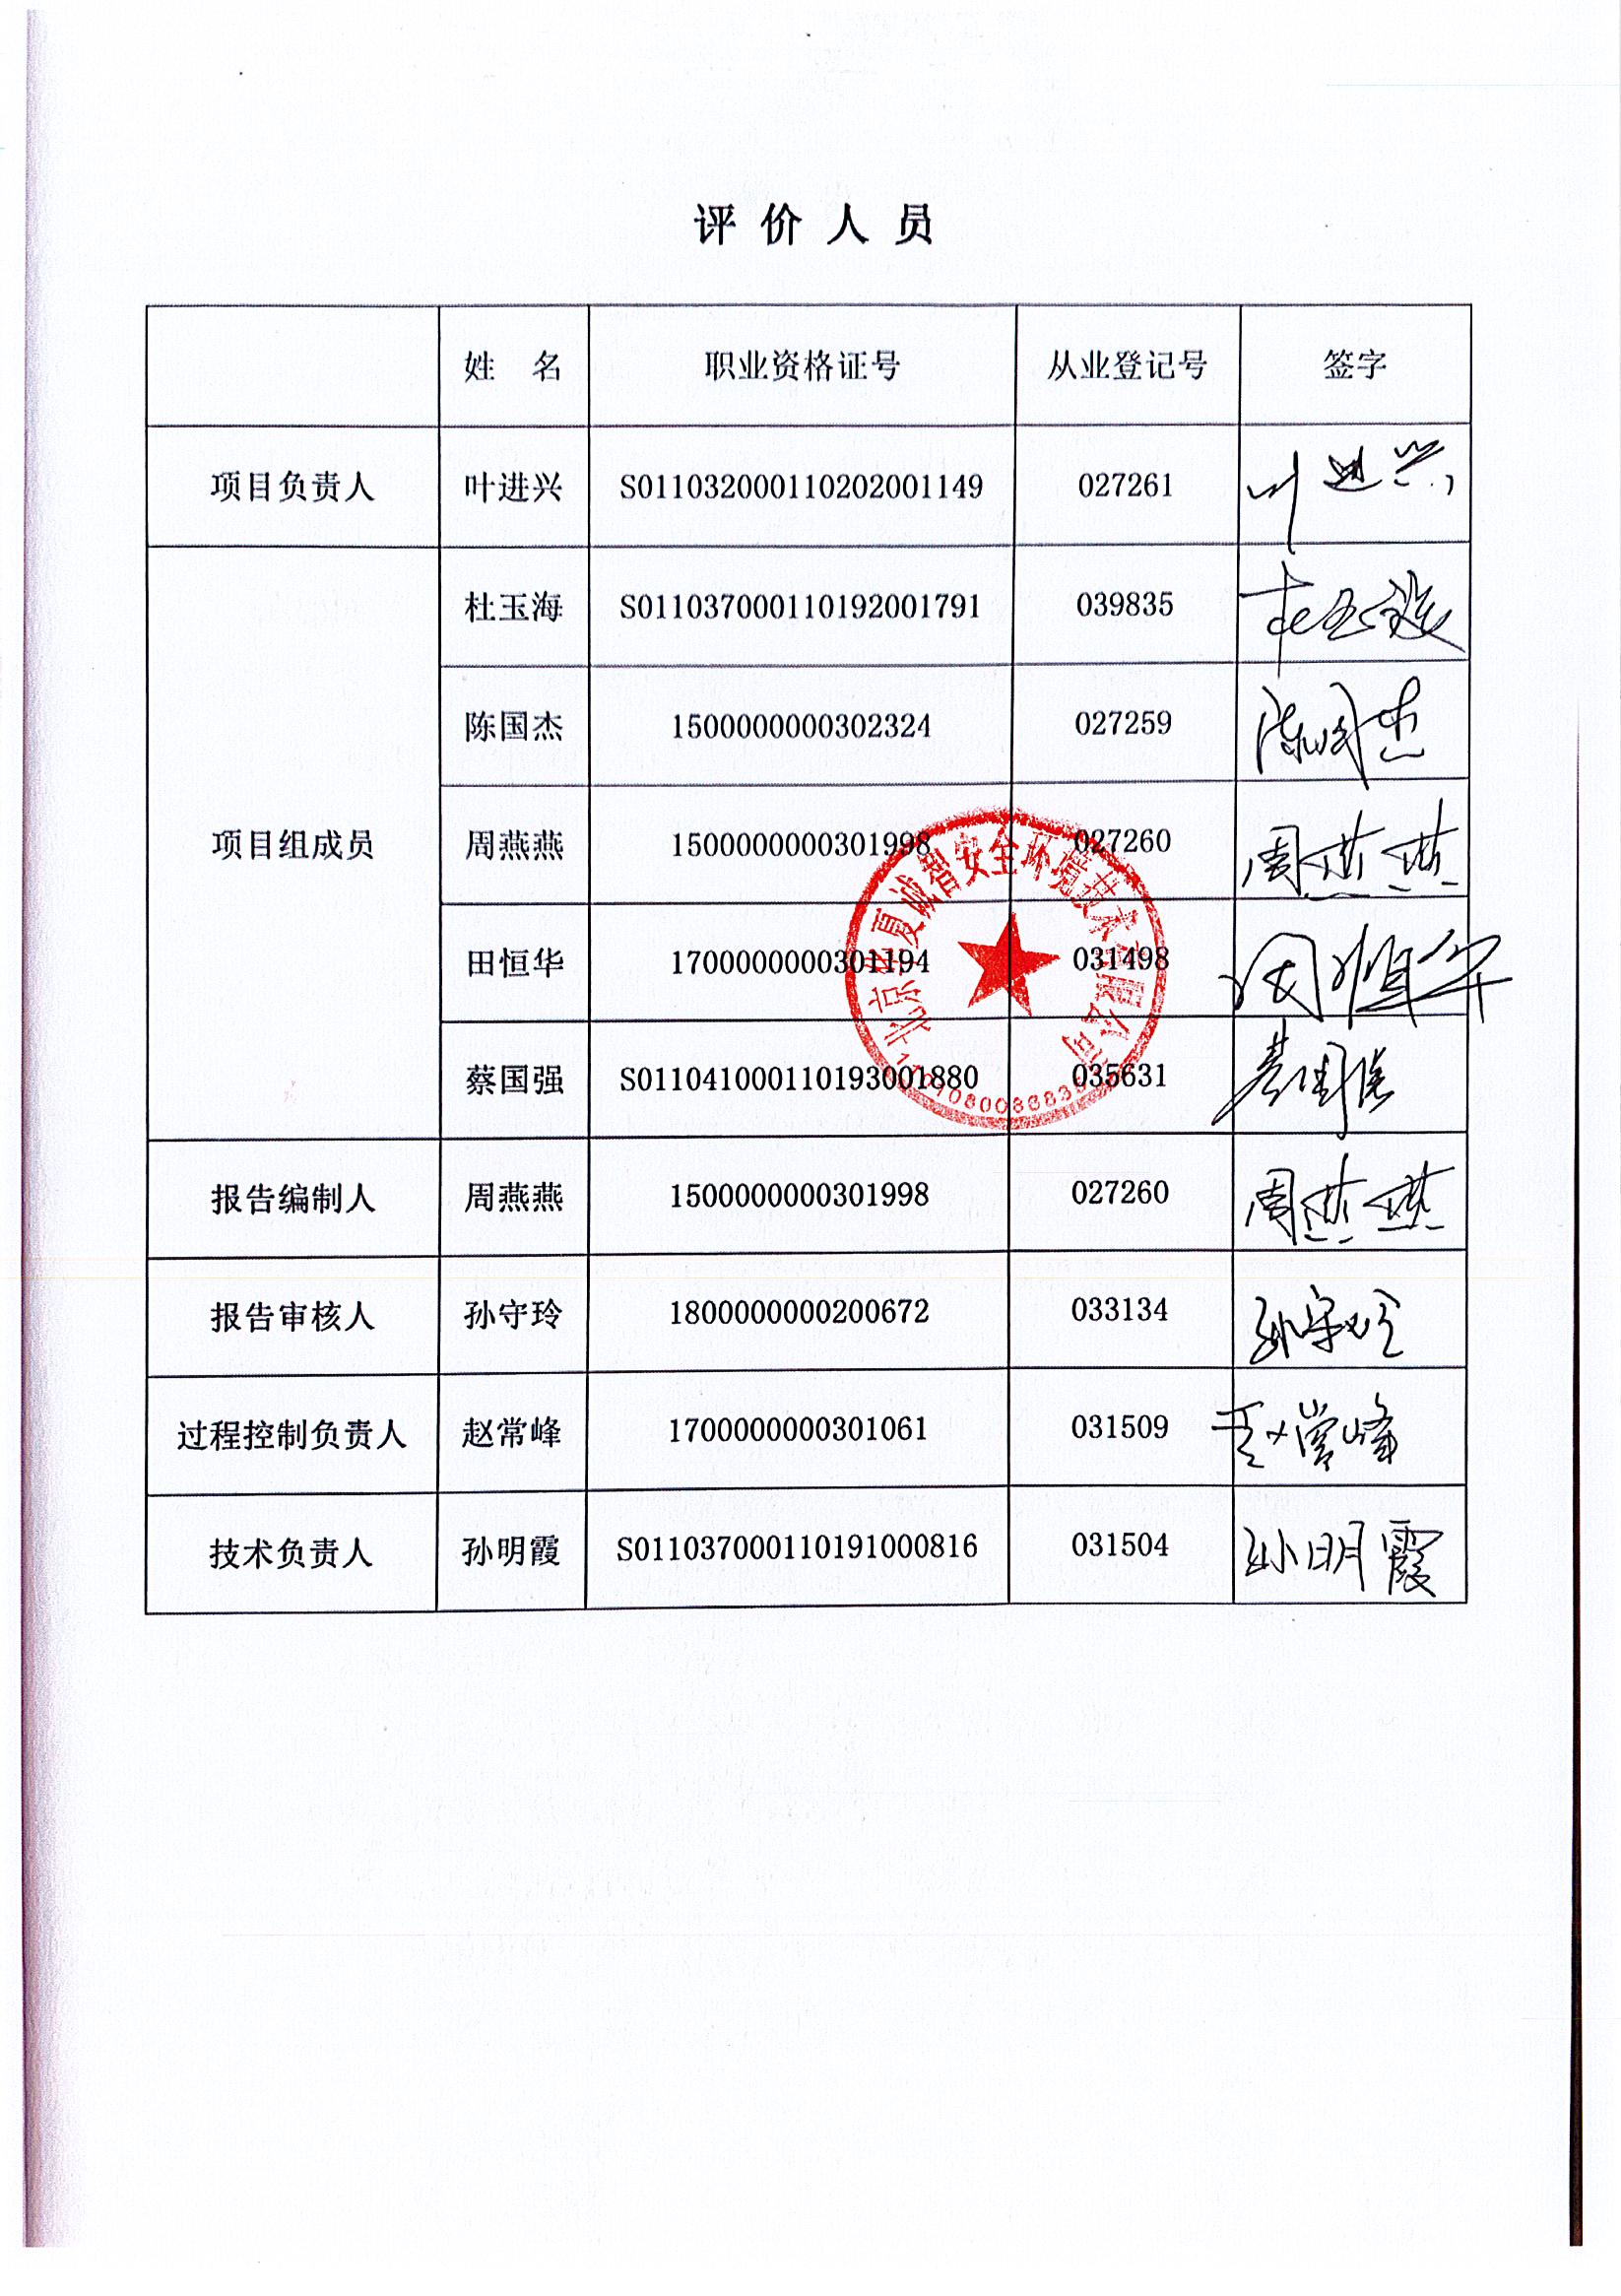 评价人员
姓 名 职业资格证号 从业登记号 签字
项目负责人 叶进兴 S011032000110202001149 027261 叶进兴
项目组成员
杜玉海 S011037000110192001791 039835 杜玉海
陈国杰 1500000000302324 027259 陈国杰
周燕燕 1500000000301998 027260 周燕燕
田恒华 1700000000301194 031498 田恒华
蔡国强 S011041000110193001880 035631 蔡国强
报告编制人 周燕燕 1500000000301998 027260 周燕燕
报告审核人 孙守玲 1800000000200672 033134 孙守玲
过程控制负责人 赵常峰 1700000000301061 031509 赵常峰
技术负责人 孙明霞 S011037000110191000816 031504 孙明霞
北京华夏诚智安全环境技术有限公司